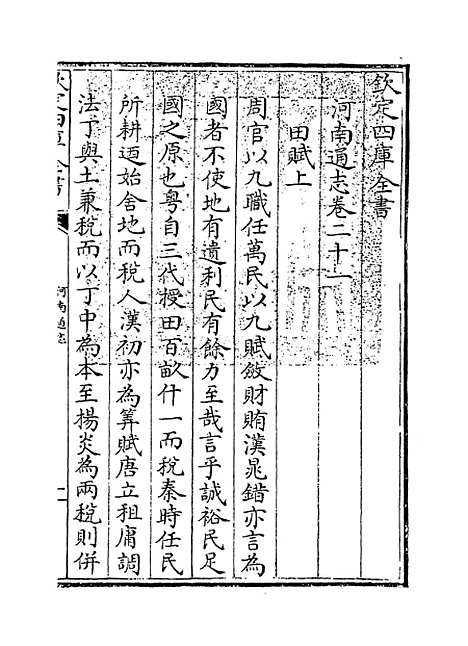 欽定四庫全書
河南通志卷二十一
田賦上
周官以九職任萬民以九賦斂財賄漢晁錯亦言為
國者不使地有遺利民有餘力至哉言乎誠裕民足
國之原也粤自三代授田百畝什一而稅秦時任民
所耕迺始舍地而稅人漢初亦為筭賦唐立租庸調
法丁與土兼稅而以丁中為本至楊炎為兩稅則併
欽定四庫全書
河南通志